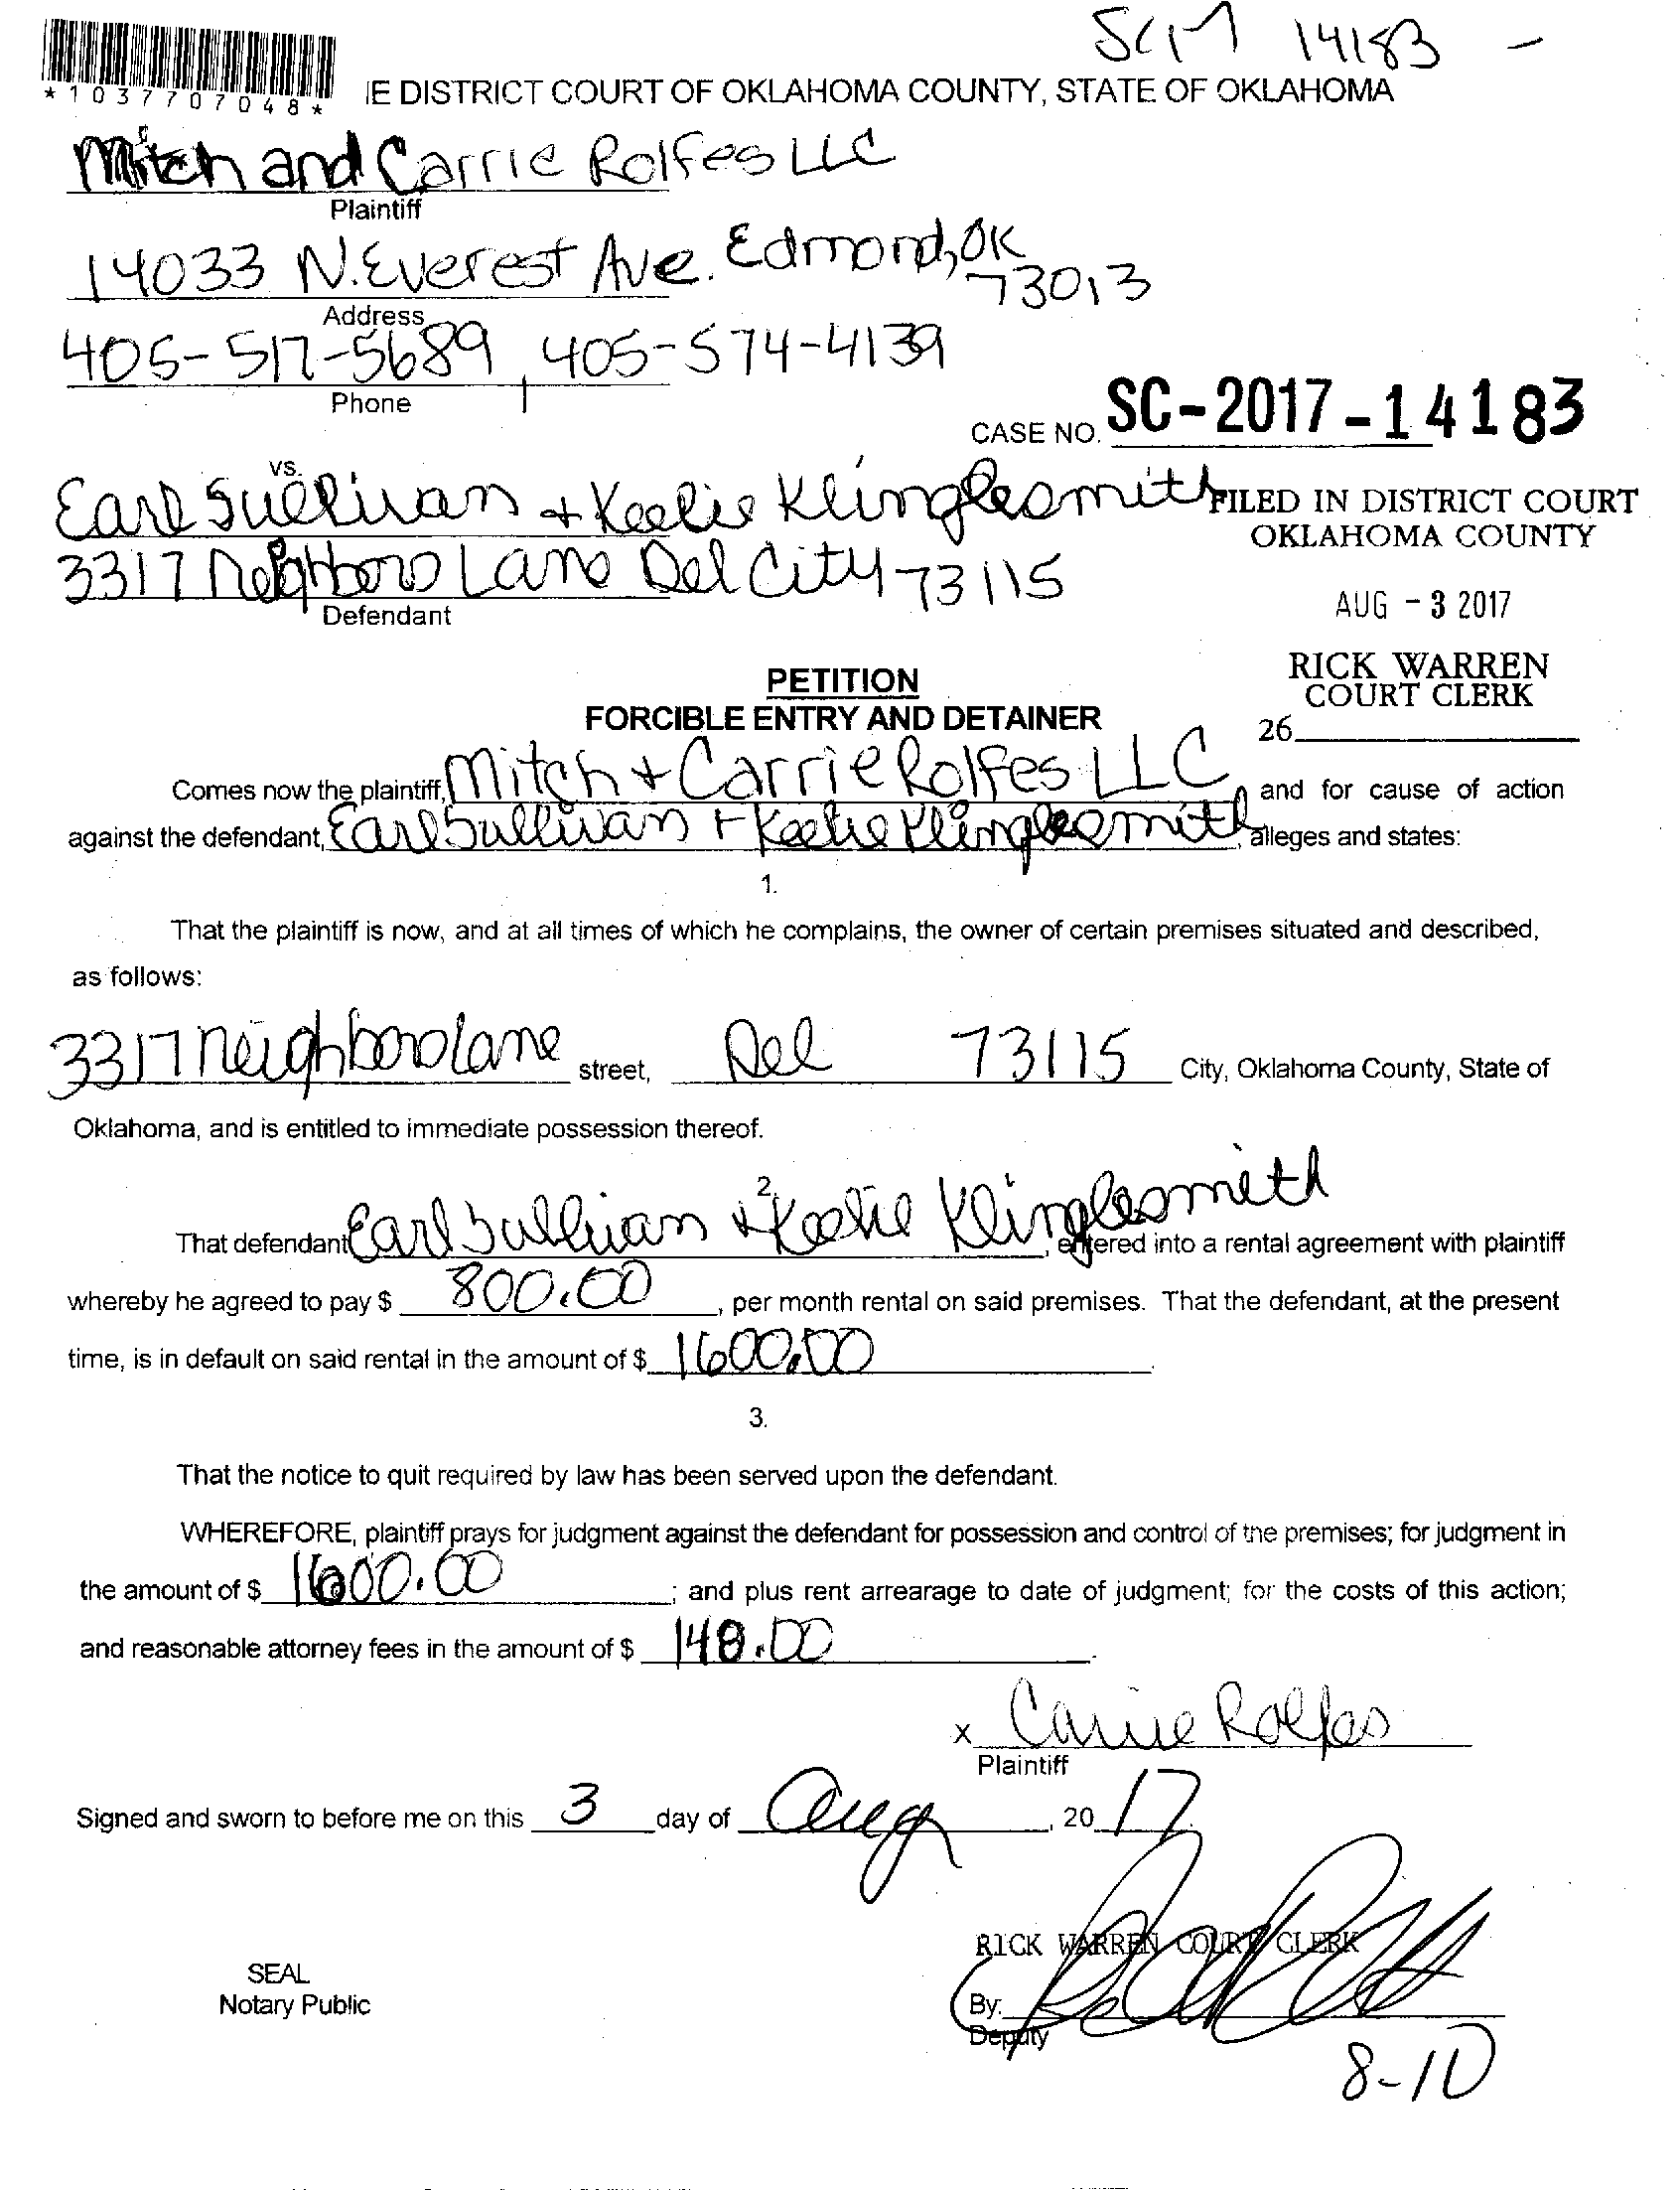 SCM 14183 -
*1037707048*
IE DISTRICT COURT OF OKLAHOMA COUNTY, STATE OF OKLAHOMA
Mitch and Carrie Rolfes LLC
Plaintiff
14033 N. Everest Ave. Edmond, OK
73013
Address
405-517-5689, 405-574-4139
Phone
CASE NO. SC-2017-14183
vs.
Earl Sullivan + Keelie Klinglesmith
FILED IN DISTRICT COURT
OKLAHOMA COUNTY
3317 Neighbors Lane Del City 73115
Defendant
AUG - 3 2017
RICK WARREN
COURT CLERK
26
PETITION
FORCIBLE ENTRY AND DETAINER
Comes now the plaintiff, Mitch + Carrie Rolfes LLC, and for cause of action
against the defendant, Earl Sullivan + Keelie Klinglesmith, alleges and states:
1.
That the plaintiff is now, and at all times of which he complains, the owner of certain premises situated and described,
as follows:
3317 neighbors lane street, Del 73115 City, Oklahoma County, State of
Oklahoma, and is entitled to immediate possession thereof.
2.
That defendant Earl Sullivan + Keelie Klinglesmith, entered into a rental agreement with plaintiff
whereby he agreed to pay $ 800.00, per month rental on said premises. That the defendant, at the present
time, is in default on said rental in the amount of $ 1600.00.
3.
That the notice to quit required by law has been served upon the defendant.
WHEREFORE, plaintiff prays for judgment against the defendant for possession and control of the premises; for judgment in
the amount of $ 1600.00; and plus rent arrearage to date of judgment; for the costs of this action;
and reasonable attorney fees in the amount of $ 148.00.
x Carrie Rolfes
Plaintiff
Signed and sworn to before me on this 3 day of Aug, 20 17
RICK WARREN COURT CLERK
SEAL
Notary Public
By:
Deputy
8-10